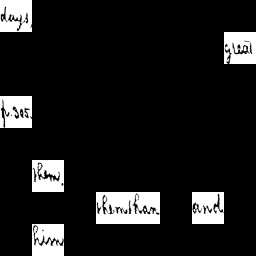 days,
great
p. 305.
them.
them than and
him